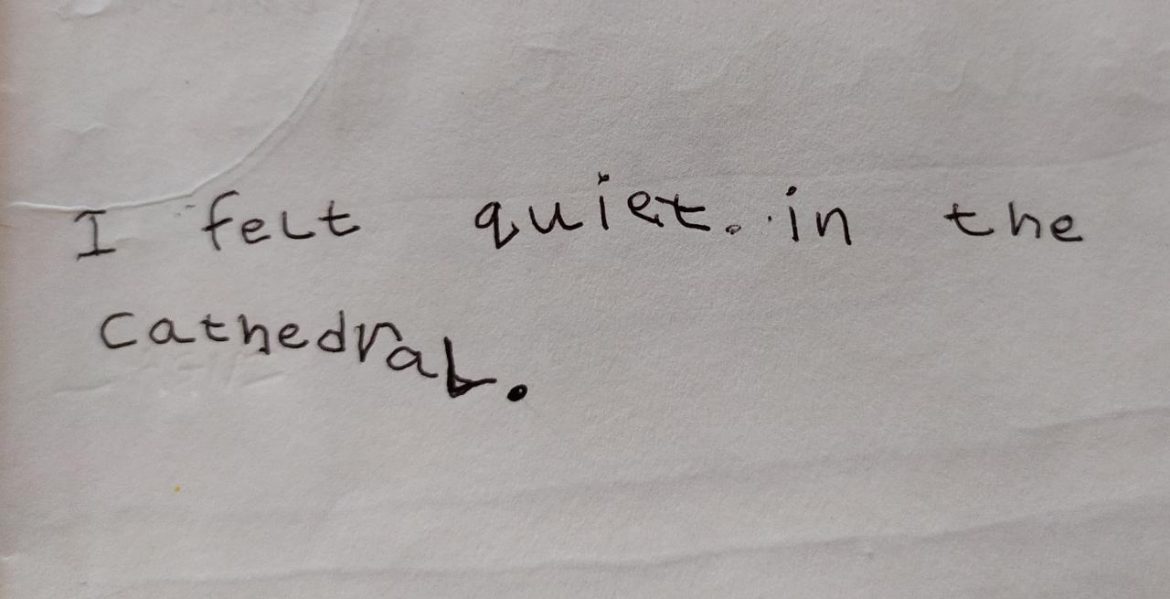 I felt quiet. in the
Cathedral.